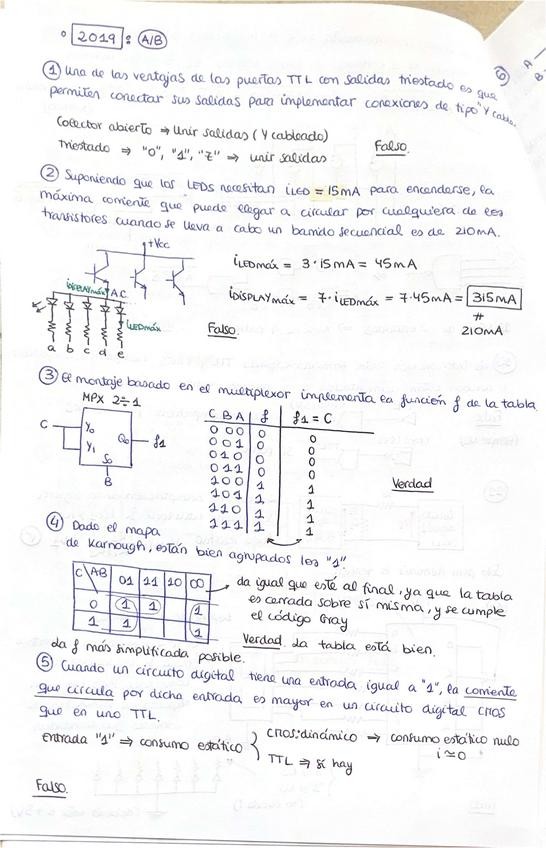 ° 2019 : A/B
① Una de las ventajas de las puertas TTL con salidas triestado es que
permiten conectar sus salidas para implementar conexiones de tipo "Y cabl.
Colector abierto ⇒ Unir salidas (Y cableado)
Triestado ⇒ "0", "1", "Z" ⇒ unir salidas
Falso.
② Suponiendo que los LEDs necesitan iLED = 15mA para encenderse, la
máxima corriente que puede llegar a circular por cualquiera de los
transistores cuando se lleva a cabo un barrido secuencial es de 210mA.
+Vcc
iDISPLAYmáx AC
iLEDmáx
a b c d e
iLEDmáx = 3·15mA = 45mA
iDISPLAYmáx = 7·iLEDmáx = 7·45mA = 315mA
≠
210mA
Falso.
③ El montaje basado en el multiplexor implementa la función f de la tabla.
MPX 2÷1
C Y0 Q0 f1
Y1
S0
B
C B A f f1 = C
0 0 0 0 0
0 0 1 0 0
0 1 0 0 0
0 1 1 0 0
1 0 0 1 1
1 0 1 1 1
1 1 0 1 1
1 1 1 1 1
Verdad
④ Dado el mapa
de Karnough, están bien agrupados los "1".
C\AB 01 11 10 00
0 1 1 1
1 1 1
da igual que esté al final, ya que la tabla
es cerrada sobre sí misma, y se cumple
el código Gray
Verdad. La tabla está bien.
La f más simplificada posible.
⑤ Cuando un circuito digital tiene una entrada igual a "1", la corriente
que circula por dicha entrada es mayor en un circuito digital CMOS
que en uno TTL.
Entrada "1" ⇒ consumo estático { CMOS: dinámico ⇒ consumo estático nulo
i ≃ 0
TTL ⇒ sí hay
Falso.
⑥
A —
B